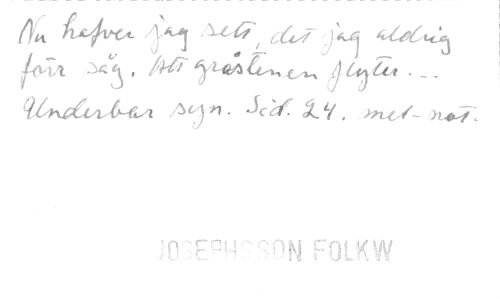 Nu hafver jag sett, det jag aldrig
förr såg. Att gråstenen flyter...
Underbar syn. Sid. 24. met-not.
JOSEPHSSON FOLKW